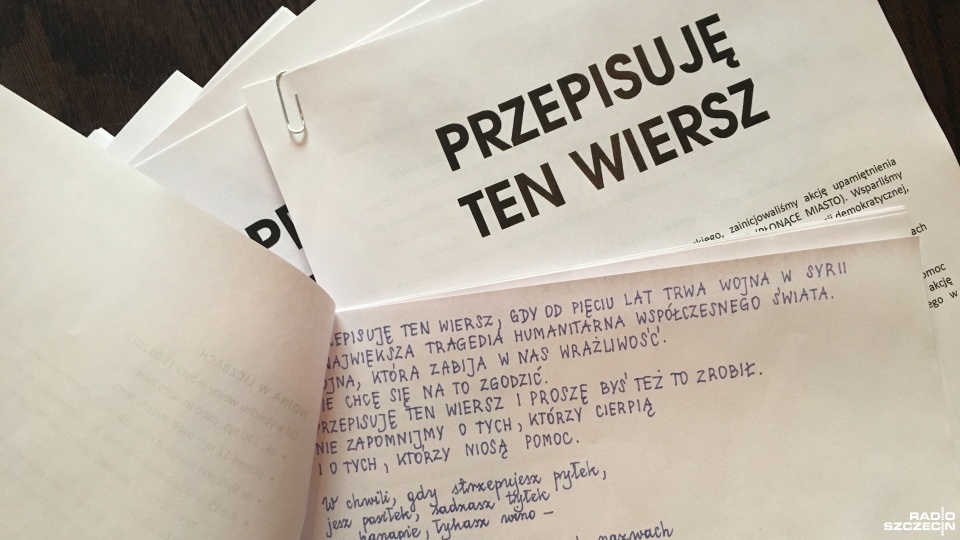 PRZEPISUJĘ
TEN WIERSZ
zainicjowaliśmy akcję upamiętnienia
MIASTO). Wsparliśmy
demokratycznej,
ach
akcję
ego w
TEN WIERSZ, GDY OD PIĘCIU LAT TRWA WOJNA W SYRII
NAJWIĘKSZA TRAGEDIA HUMANITARNA WSPÓŁCZESNEGO ŚWIATA.
KTÓRA ZABIJA W NAS WRAŻLIWOŚĆ.
CHCĘ SIĘ NA TO ZGODZIĆ.
PRZEPISUJĘ TEN WIERSZ I PROSZĘ BYŚ TEŻ TO ZROBIŁ.
NIE ZAPOMNIJMY O TYCH, KTÓRZY CIERPIĄ
I O TYCH, KTÓRZY NIOSĄ POMOC.
W chwili, gdy strzepujesz pyłek,
jesz posiłek, sadzasz tyłek
kanapie, łykasz wino –
nazwach
RADIO
SZCZECIN